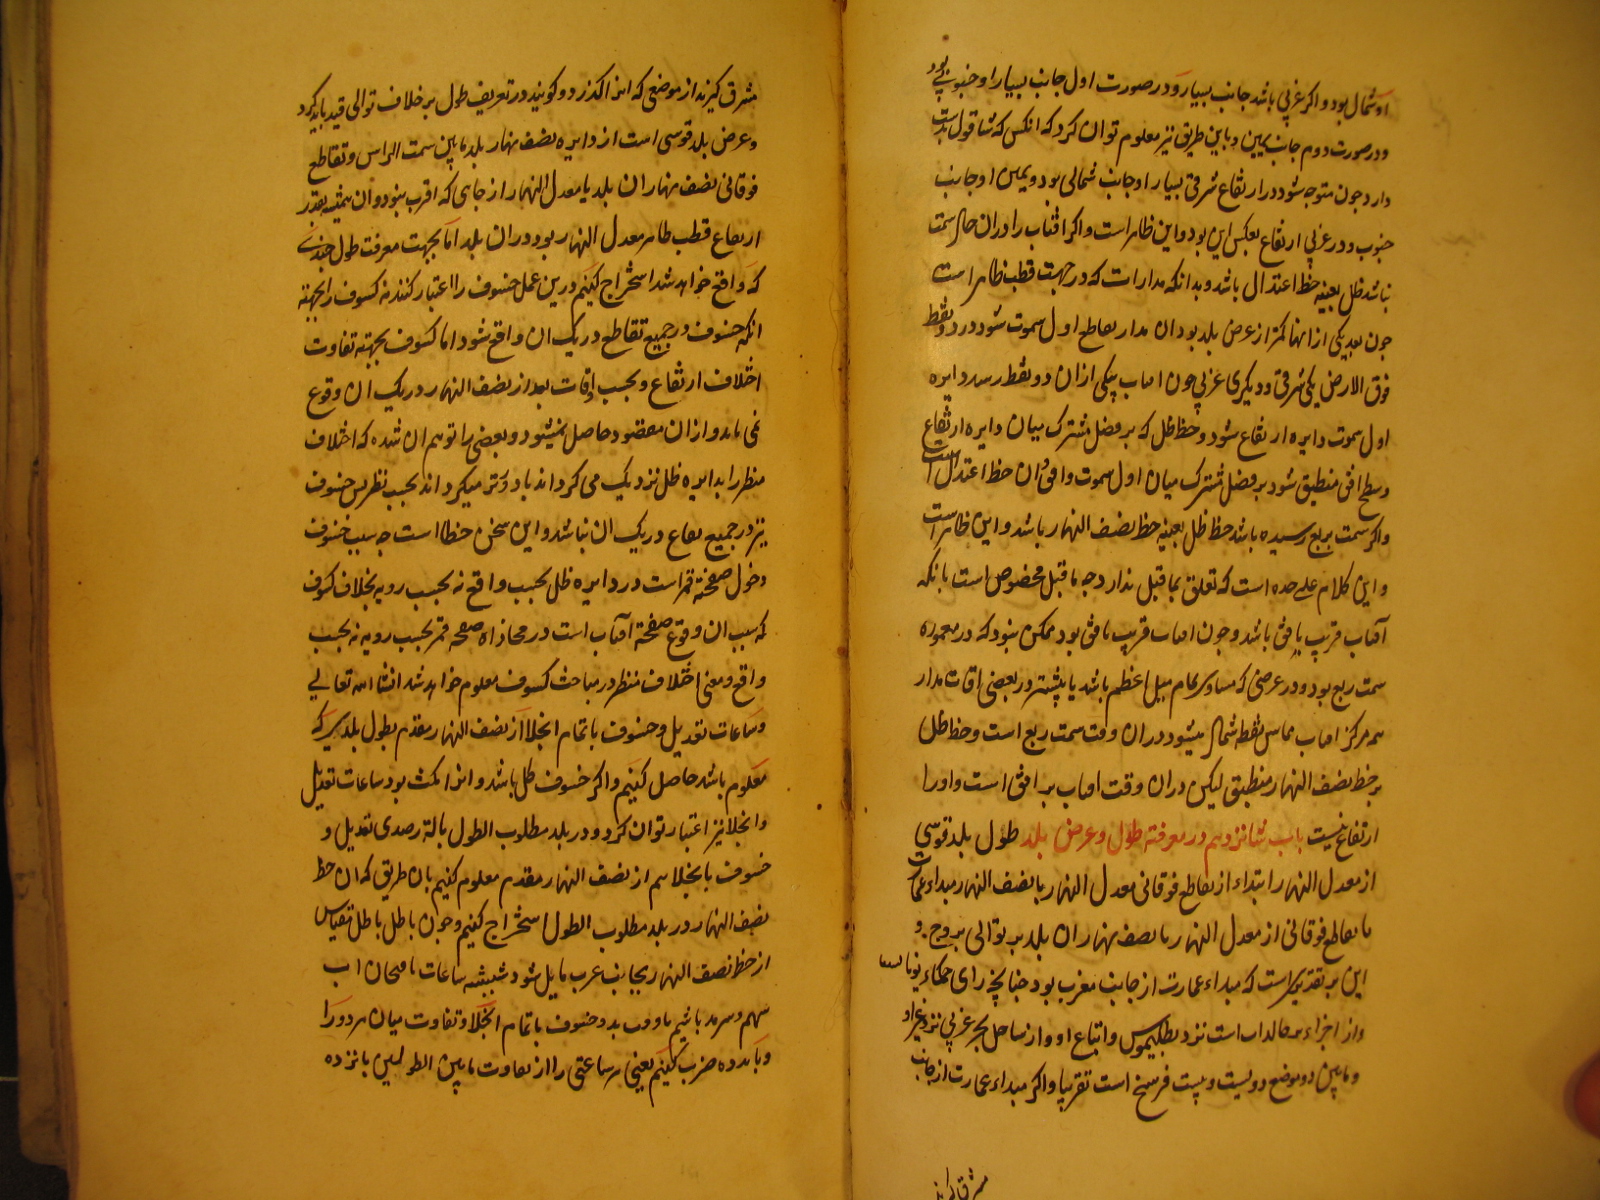 او شمال بود و اکر غربی باشد جانب یسار و در صورت اول جانب یسار او جنوبی بود
و در صورت دوم جانب یمین و باین طریق نیز معلوم توان کرد که انکس که شاقول بدست
دارد چون متوجه شود در ارتفاع شرقی یسار او جانب شمالی بود و یمین او جانب
جنوب و در غربی ارتفاع بعکس این بود و این ظاهر است و اکر افتاب را در ان حال سمت
نباشد ظل بعینه خط اعتدال باشد و بدانکه مدارات که در جهت قطب ظاهر است
چون بعد یکی از انها کمتر از عرض بلد بود ان مدار تقاطع اول سموت شود در دو نقطه
فوق الارض یکی شرقی و دیکری غربی چون افتاب بیکی از ان دو نقطه رسد دایره
اول سموت دایره ارتفاع شود و خط ظل که بر فصل مشترک میان دایره ارتفاع
و سطح افق منطبق شود بر فصل مشترک میان اول سموت و افق و ان خط اعتدال است
و اکر سمت بربع رسیده باشد خط ظل بعینه خط نصف النهار باشد و این ظاهر است
و این کلام علی حده است که تعلق بما قبل ندارد چه ما قبل مخصوص است بانکه
آفتاب قریب بافق باشد و چون افتاب قریب بافق بود ممکن نبود که در معموره
سمت ربع بود و در عرضی که مساوی تمام میل اعظم باشد یا بیشتر در بعضی اوقات مدار
مرکز افتاب مماس نقطه شمال میشود در ان وقت سمت ربع است و خط ظل
بر خط نصف النهار منطبق لیکن در ان وقت افتاب بر افق است و او را
ارتفاع نیست باب شانزدهم در معرفة طول و عرض بلد طول بلد قوسی
از معدل النهار ابتداء از تقاطع فوقانی معدل النهار با نصف النهار مبداء عمارت
تا تقاطع فوقانی از معدل النهار با نصف نهار ان بلد بر توالی بروج و
این بر تقدیریست که مبداء عمارت از جانب مغرب بود چنانچه رای حکماء یونا
و از اجزاء خالدات است نزد بطلیموس و اتباع او و از ساحل بحر غربی نزد غیر او
و مابین دو موضع دویست و بیست فرسخ است تقریبا و اکر مبداء عمارت از جانب
مشرق کیرند
مشرق کیرند از موضعی که انرا کنکدز کویند در تعریف طول بر خلاف توالی قید باید کرد
و عرض بلد قوسی است از دایره نصف نهار بلد مابین سمت الراس و تقاطع
فوقانی نصف نهار ان بلد با معدل النهار از جایی که اقرب بود و ان همیشه بقدر
ارتفاع قطب ظاهر معدل النهار بود در ان بلد اما بجهت معرفت طول
که واقع خواهد شد استخراج کنیم درین عمل خسوف را اعتبار کنند نه کسوف را بجهة
انکه خسوف در جمیع تقاطع در یک ان واقع شود اما کسوف بجهة تفاوت
اختلاف ارتفاع و بحسب اوقات بعد از نصف النهار در یک ان وقوع
نمی یابد و از ان مقصود حاصل نمیشود و بعضی را توهم ان شده که اختلاف
منظر را بدایره ظل نزدیک می کرداند یا دورتر میکرداند بحسب نظر پس خسوف
نیز در جمیع بقاع در یک ان نباشد و این سخن خطا است چه سبب خسوف
دخول صفحة قمر است در دایره ظل بحسب واقع نه بحسب رویه بخلاف کسوف
که سبب ان وقوع صفحة آفتاب است در محاذاه صفحه قمر بحسب رویه نه بحسب
واقع و معنی اختلاف منظر در مباحث کسوف معلوم خواهد شد انشا الله تعالی
و ساعات تعدیل و خسوف با تمام انجلا از نصف النهار مقدم بطول بلدی که
معلوم باشد حاصل کنیم و اکر خسوف کل باشد و انرا مکث بود ساعات تعدیل
و انجلا نیز اعتبار توان کرد و در بلد مطلوب الطول بالة رصدی تعدیل و
خسوف با نجلا هم از نصف النهار مقدم معلوم کنیم بان طریق که ان خط
نصف النهار در بلد مطلوب الطول استخراج کنیم و چون باطل باطل مقیاس
از خط نصف النهار بجانب غرب مایل شود شیشه ساعات با
و خسوف با تمام انجلا و تفاوت میان هر دو را
و پانزده ضرب کنیم یعنی هر ساعتی را از تفاوت مابین الطولین پانزده